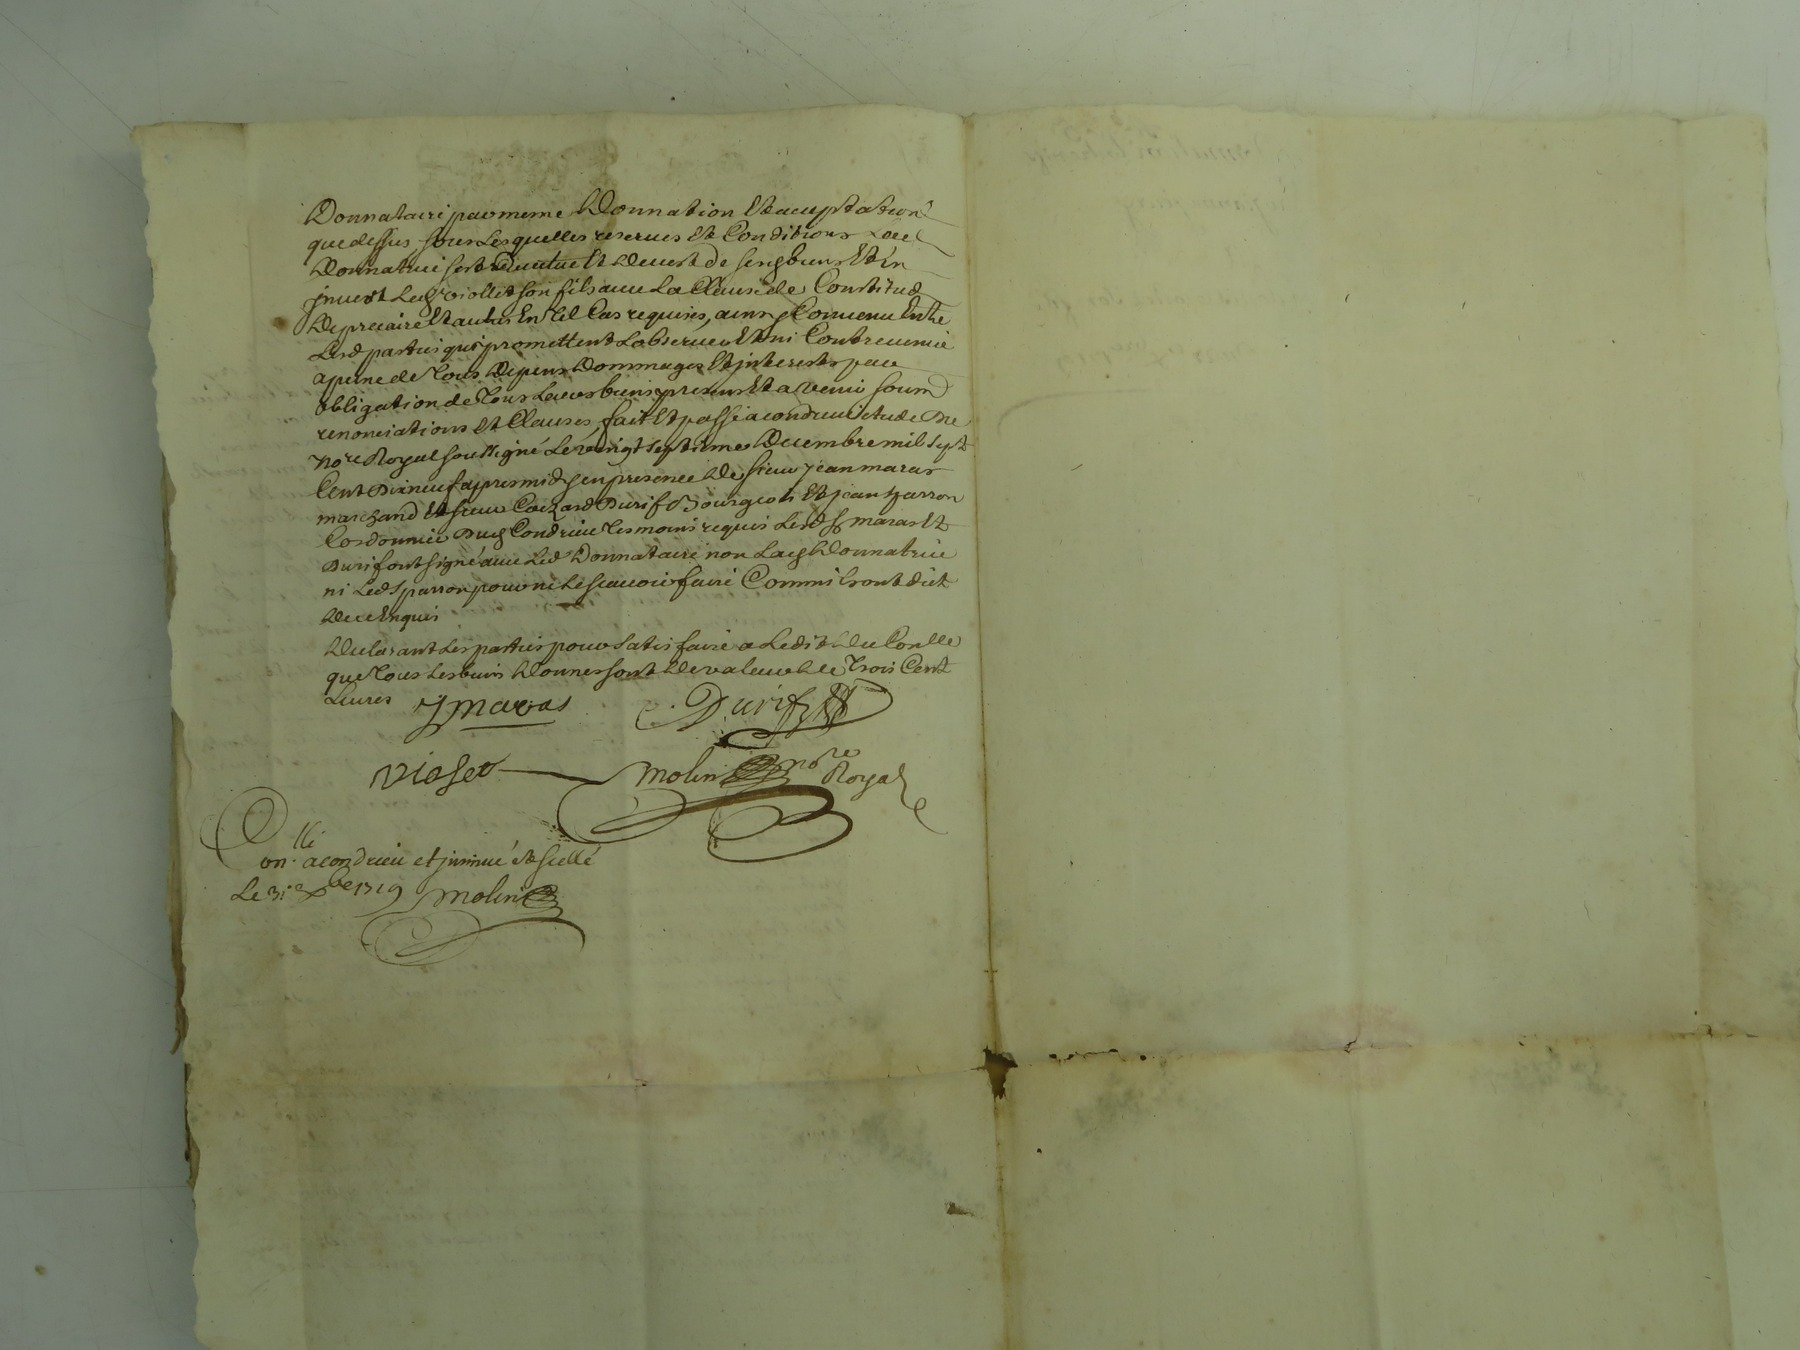 Donnataire par meme donnation et acceptation
que dessus, sous lesquelles reserves et Conditions lad
Donnatrice sest et devest de sesd biens et en
jnvest led sr viollet son fils avec la Clause de Constitud
de precaire et autres En tel Cas requises, ainsy Convenu Entre
lesd parties qui promettent lobserver et ny Contrevenir
a peine de tous depens dommages et jnterests par
obligation de tous leurs biens presens et a venir soumd
renonciations et Clauses, fait et passé a condrieu etude du
nore Royal soussigné le vingt septieme Decembre mil sept
Cent dixneuf apres midy en presence de sieur jean maras
marchand et sieur Durif Bourgeois et jean parron
Cordonnier dud Condrieu tesmoins requis lesd srs maras et
durif ont signé avec led donnataire non lad donnatrice
ni led parron pour ne le scavoir faire Comme ils ont dict
de ce Enquis
declarant les parties pour satisfaire a ledit du Conlle
que tous les biens donnes sont de valeur de trois Cent
Livres J maras Durif
violet molin nore Royal
Conllé a condrieu et jnsinué et scellé
Le 31e xbre 1719 molin